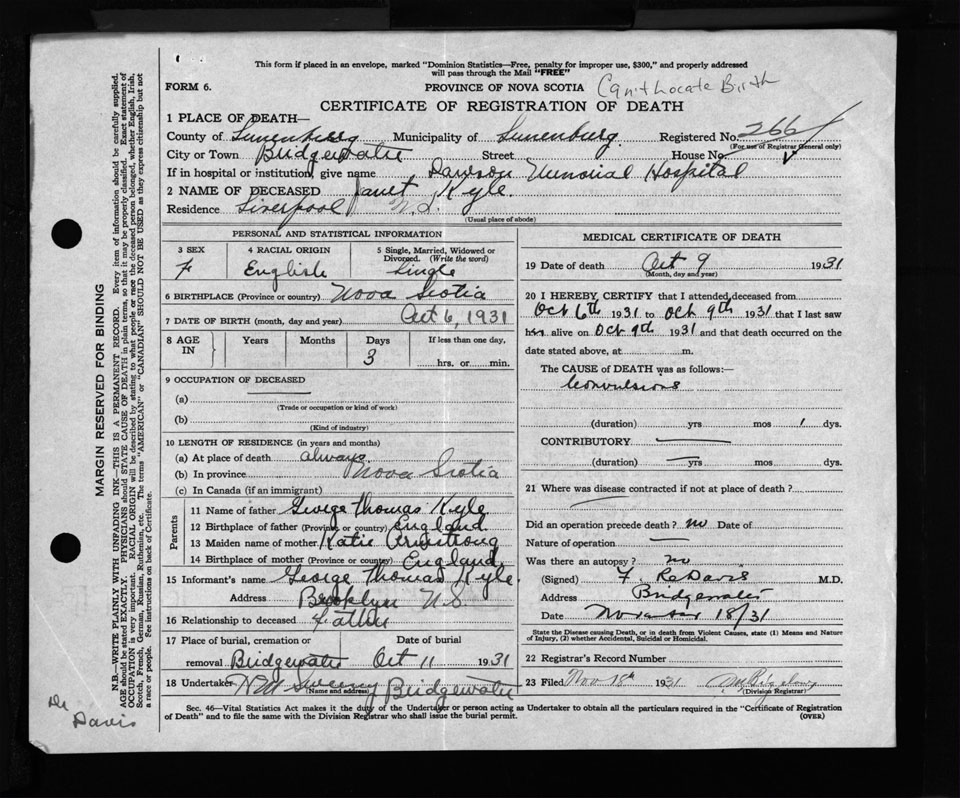 This form if placed in an envelope, marked "Dominion Statistics—Free, penalty for improper use, $300," and properly addressed
will pass through the Mail "FREE"
FORM 6.
PROVINCE OF NOVA SCOTIA
Can't Locate Birth
CERTIFICATE OF REGISTRATION OF DEATH
1 PLACE OF DEATH—
County of Lunenburg Municipality of Lunenburg Registered No. 266
(For use of Registrar General only)
City or Town Bridgewater Street House No.
If in hospital or institution, give name Dawson Memorial Hospital
2 NAME OF DECEASED Janet Kyle
Residence Liverpool N.S.
(Usual place of abode)
PERSONAL AND STATISTICAL INFORMATION
3 SEX 4 RACIAL ORIGIN 5 Single, Married, Widowed or
Divorced. (Write the word)
F English Single
6 BIRTHPLACE (Province or country) Nova Scotia
7 DATE OF BIRTH (month, day and year) Oct 6, 1931
8 AGE IN Years Months Days If less than one day,
3 hrs. or min.
9 OCCUPATION OF DECEASED
(a)
(Trade or occupation or kind of work)
(b)
(Kind of industry)
10 LENGTH OF RESIDENCE (in years and months)
(a) At place of death always
(b) In province Nova Scotia
(c) In Canada (if an immigrant)
Parents
11 Name of father George Thomas Kyle
12 Birthplace of father (Province or country) England
13 Maiden name of mother Katie Armstrong
14 Birthplace of mother (Province or country) England
15 Informant's name George Thomas Kyle
Address Brooklyn N.S.
16 Relationship to deceased Father
17 Place of burial, cremation or Date of burial
removal Bridgewater Oct 11 1931
18 Undertaker Sweeny Bridgewater
(Name and address)
MEDICAL CERTIFICATE OF DEATH
19 Date of death Oct 9 1931
(Month, day and year)
20 I HEREBY CERTIFY that I attended deceased from
Oct 6th 1931 to Oct 9th 1931 that I last saw
her alive on Oct 9th 1931 and that death occurred on the
date stated above, at m.
The CAUSE of DEATH was as follows:—
Convulsions
(duration) yrs mos 1 dys.
CONTRIBUTORY
(duration) yrs mos. dys.
21 Where was disease contracted if not at place of death?
Did an operation precede death? no Date of
Nature of operation
Was there an autopsy? no
(Signed) F. R. Davis M.D.
Address Bridgewater
Date November 18/31
State the Disease causing Death, or in death from Violent Causes, state (1) Means and Nature
of Injury, (2) whether Accidental, Suicidal or Homicidal.
22 Registrar's Record Number
23 Filed Nov 18th 1931
(Division Registrar)
Sec. 46—Vital Statistics Act makes it the duty of the Undertaker or person acting as Undertaker to obtain all the particulars required in the "Certificate of Registration
of Death" and to file the same with the Division Registrar who shall issue the burial permit.
(OVER)
MARGIN RESERVED FOR BINDING
N.B.—WRITE PLAINLY WITH UNFADING INK—THIS IS A PERMANENT RECORD. Every item of information should be carefully supplied.
AGE should be stated EXACTLY. PHYSICIANS should STATE CAUSE OF DEATH in plain terms, so that it may be properly classified. Exact statement of
OCCUPATION is very important. RACIAL ORIGIN will be described by stating to what people or race the deceased person belonged, whether English, Irish,
Scotch, French, German, Russian, Ruthenian, etc. The terms "AMERICAN" or "CANADIAN" SHOULD NOT BE USED as they express citizenship but not
a race or people. See instructions on back of Certificate.
Dr
Davis